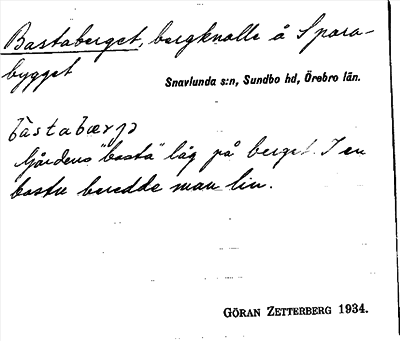 Bastaberget, bergknalle å Spora-
bygget
Snavlunda s:n, Sundbo hd, Örebro län.
bàstabærjə
Gårdens "basta" låg på berget. I en
bastu beredde man lin.
GÖRAN ZETTERBERG 1934.